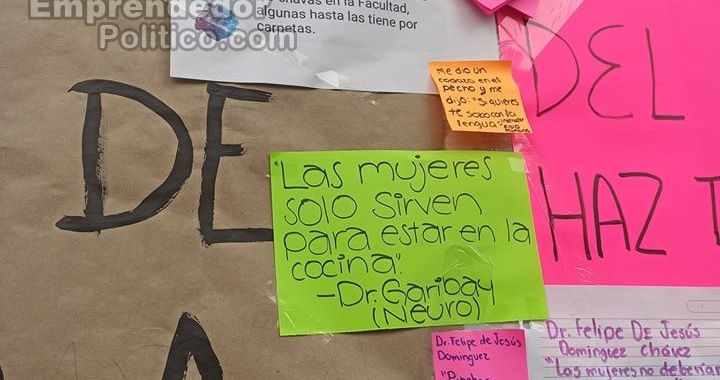 Emprendedor
Politico.com
chavas en la Facultad,
algunas hasta las tiene por
carpetas.
DE
Me dio un
codazo en el
pecho y me
dijo: "Si quieres
te sobo con la
lengua"
DEL
HAZ T
"Las mujeres
solo sirven
para estar en la
cocina".
-Dr. Garibay
(Neuro)
Dr. Felipe de Jesús
Dominguez
Dr. Felipe De Jesús
Dominguez Chávez
"Las mujeres no deberían